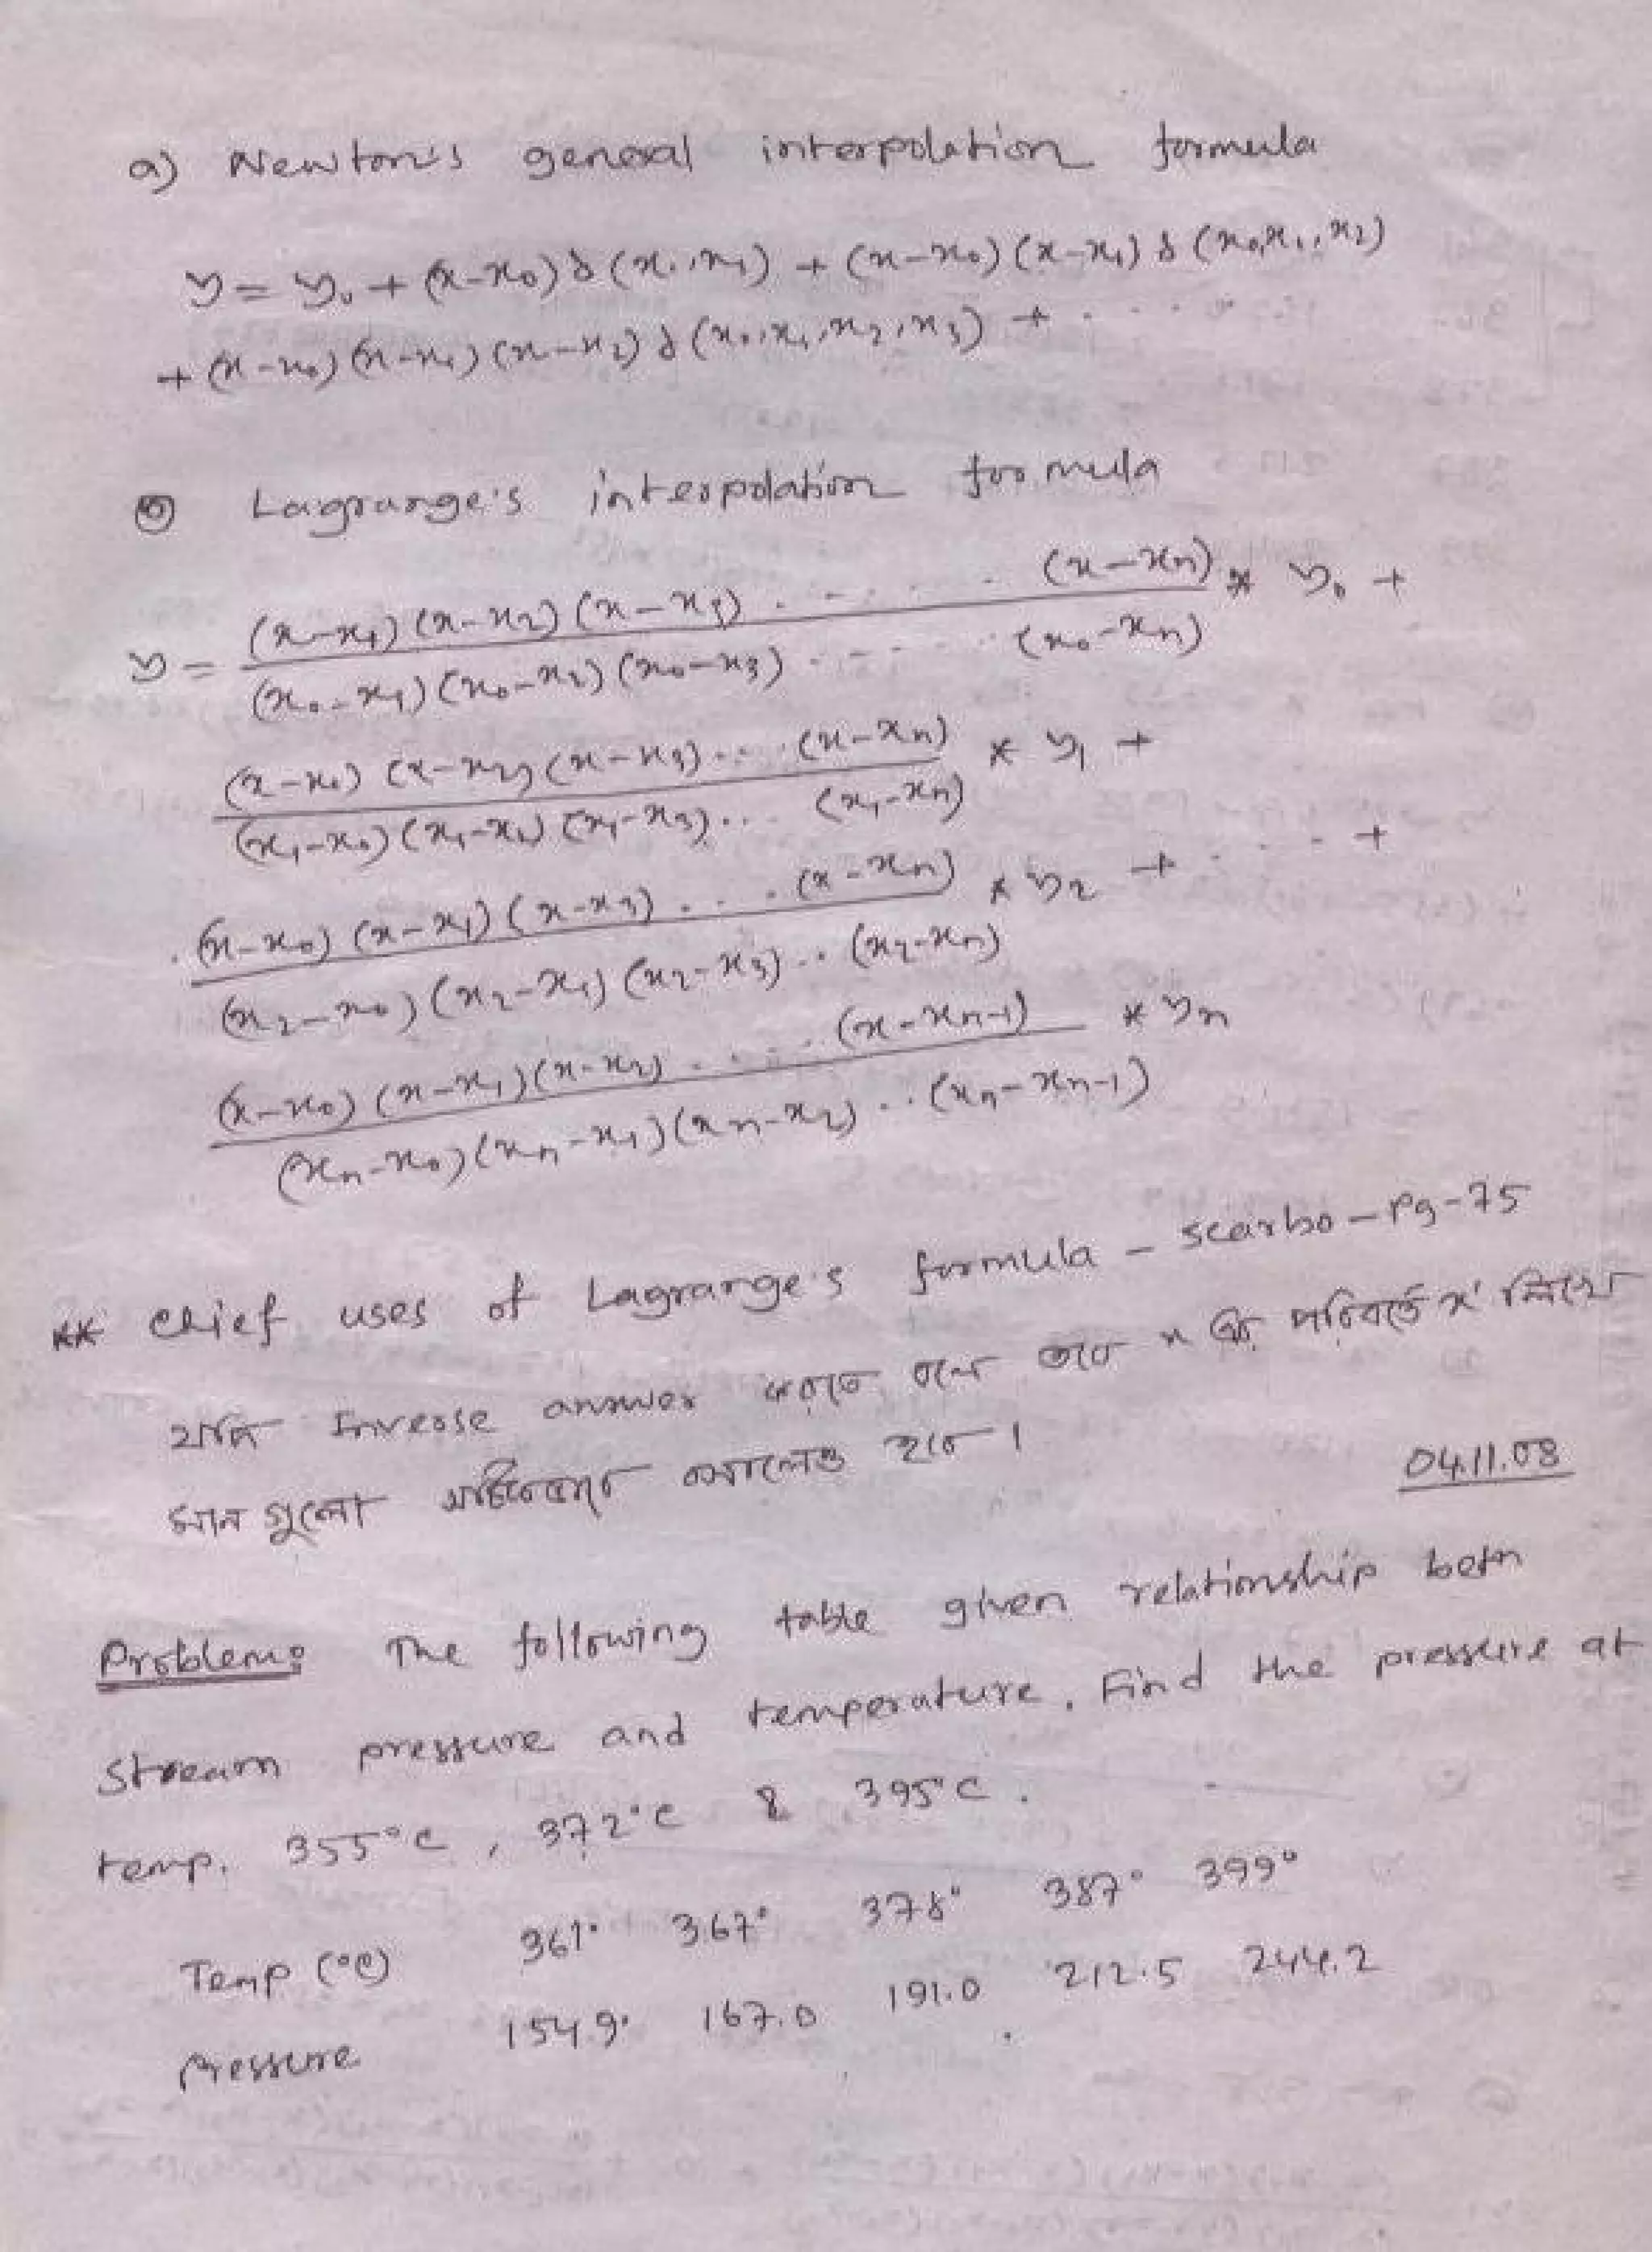 a) Newton's general interpolation formula
y = y₀ + (x-x₀) δ (x₀,x₁) + (x-x₀) (x-x₁) δ (x₀,x₁,x₂)
+ (x-x₀) (x-x₁) (x-x₂) δ (x₀,x₁,x₂,x₃) + ....
Lagrange's interpolation formula
(x-x₁) (x-x₂) (x-x₃) ..... (x-xₙ) * y₀ +
y =
(x₀-x₁) (x₀-x₂) (x₀-x₃) ..... (x₀-xₙ)
(x-x₀) (x-x₂) (x-x₃) ... (x-xₙ) * y₁ +
(x₁-x₀) (x₁-x₂) (x₁-x₃) .. (x₁-xₙ)
(x-x₀) (x-x₁) (x-x₃) ... (x-xₙ) * y₂ + .... +
(x₂-x₀) (x₂-x₁) (x₂-x₃) .. (x₂-xₙ)
(x-x₀) (x-x₁) (x-x₂) ..... (x-xₙ₋₁) * yₙ
(xₙ-x₀) (xₙ-x₁) (xₙ-x₂) .. (xₙ-xₙ₋₁)
** Chief uses of Lagrange's formula - scarbo - Pg-75
যদি Inverse answer করতে বলে তবে x এর পরিবর্তে x' লিখে
মান গুলো বসালেও হবে।
04.11.08
Problem: The following table given relationship betn
Stream pressure and temperature. Find the pressure at
temp. 355°C, 372°C & 395°C.
Temp (°C) 361° 367° 378° 387° 399°
Pressure 154.9 167.0 191.0 212.5 244.2